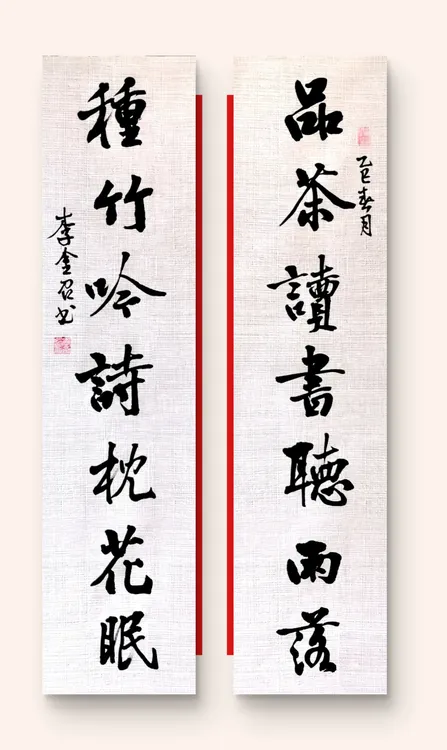 品茶讀書聽雨落
乙巳春月
種竹吟詩枕花眠
李金召书